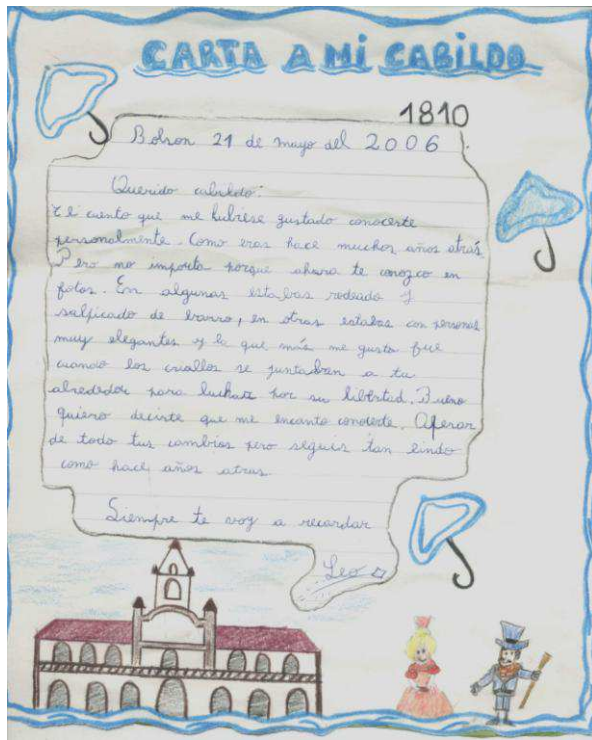 CARTA A MI CABILDO
1810
Bolson 21 de mayo del 2006
Querido cabildo:
Te cuento que me hubiese gustado conocerte
personalmente. Como eras hace muchos años atrás
Pero no importa porque ahora te conozco en
fotos. En algunas estabas rodeado y
salpicado de barro, en otras estabas con personas
muy elegantes y la que más me gusto fue
cuando los criollos se juntaban a tu
alrededor para luchar por su libertad. Bueno
quiero decirte que me encanto conocerte. Apesar
de todo tus cambios pero seguis tan lindo
como hace años atras
Siempre te voy a recordar
Leo